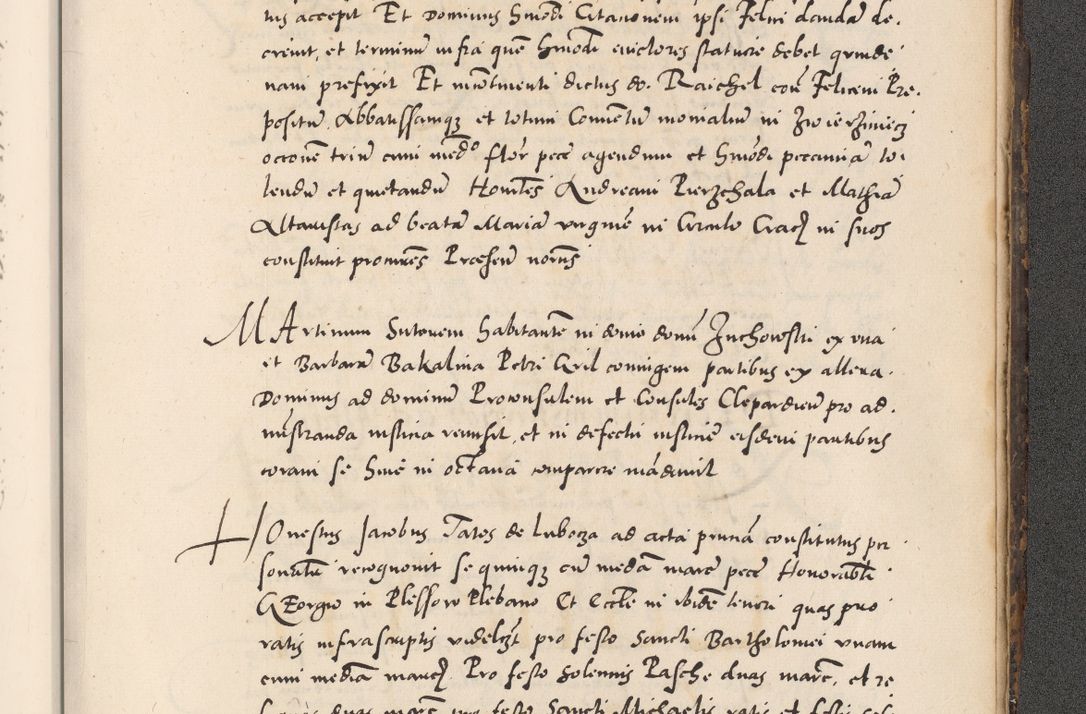 tus accepit Et Dominus Hmõdi Citationem ipsi Felici dandã de.
crevit, et terminũ infra quem hmõdi evictores statuere debet quinde
nam prefixit Et in cõtinenti dictus do. Raichel coñ Felicem Pre.
positũ, Abbatissamqz et totum Conventũ monialiũ in Zwierziniecz
octo cum med° flor pecc agendum et hmõdi pecuniã to.
lendũ et quietandũ Honẽs Andream Pierzchala et Mathiã
Altaristas ad beatã Mariã virginẽ in Circulo Crac in suos
constituit procures Presenũ
MArtinum Sutorem habitantẽ in domo domi Zuchowski ex una
et Barbarã Bakalina Petri Gril coniugem partibus ex altera.
Dominus ad dominũ Proconsulem et Consules Clepardieñ pro ad.
mĩstranda iusticia remisit, et in defectu iusticie eisdem partibus
coram se hinc in octava comparere mãdavit
HOnestus Jacobus Tatos de Lubocza ad acta prima constitutus per
sonalr recognovit se quinqz cũ mediã marc pecc Honorabli
GEorgio in Plessow Plebano Et Eccle in ibidẽ teneri quas pro
ratis infrascriptis videlczt pro festo Sancti Bartholomei unam
cum mediã marc. Pro festo solennis Pasche duas marc, et re
duas marc pro festo Sancti Michaelis ratis et